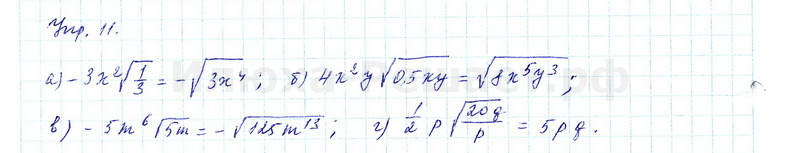 Упр. 11.
а) -3x²√(1/3) = -√(3x⁴); б) 4x²y√(0,5xy) = √(8x⁵y³);
в) -5m⁶√(5m) = -√(125m¹³); г) 1/2 p√(20q/p) = 5pq.